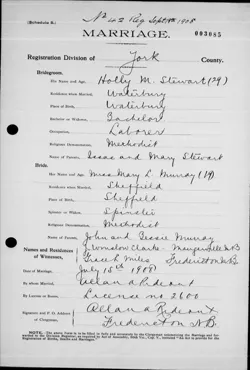 (Schedule B.)
No 42 Reg Sept 18th 1908
MARRIAGE.
003085
Registration Division of York County.
Bridegroom.
His Name and Age, Holly M. Stewart (29)
Residence when Married, Waterbury
Place of Birth, Waterbury
Bachelor or Widower, Bachelor
Occupation, Laborer
Religious Denomination, Methodist
Names of Parents, Isaac and Mary Stewart
Bride.
Her Name and Age, Miss Mary L. Murray (19)
Residence when Married, Sheffield
Place of Birth, Sheffield
Spinster or Widow, Spinster
Religious Denomination, Methodist
Names of Parents, John and Bessie Murray
Names and Residences of Witnesses, Winslow Clarke Maugerville N.B
Grace L. Miles Fredericton N.B
Date of Marriage, July 15th 1908
By whom Married, Allan A Rideout
By License or Banns, License no. 2600
Signature and P. O. Address of Clergyman, Allan A Rideout
Fredericton N.B.